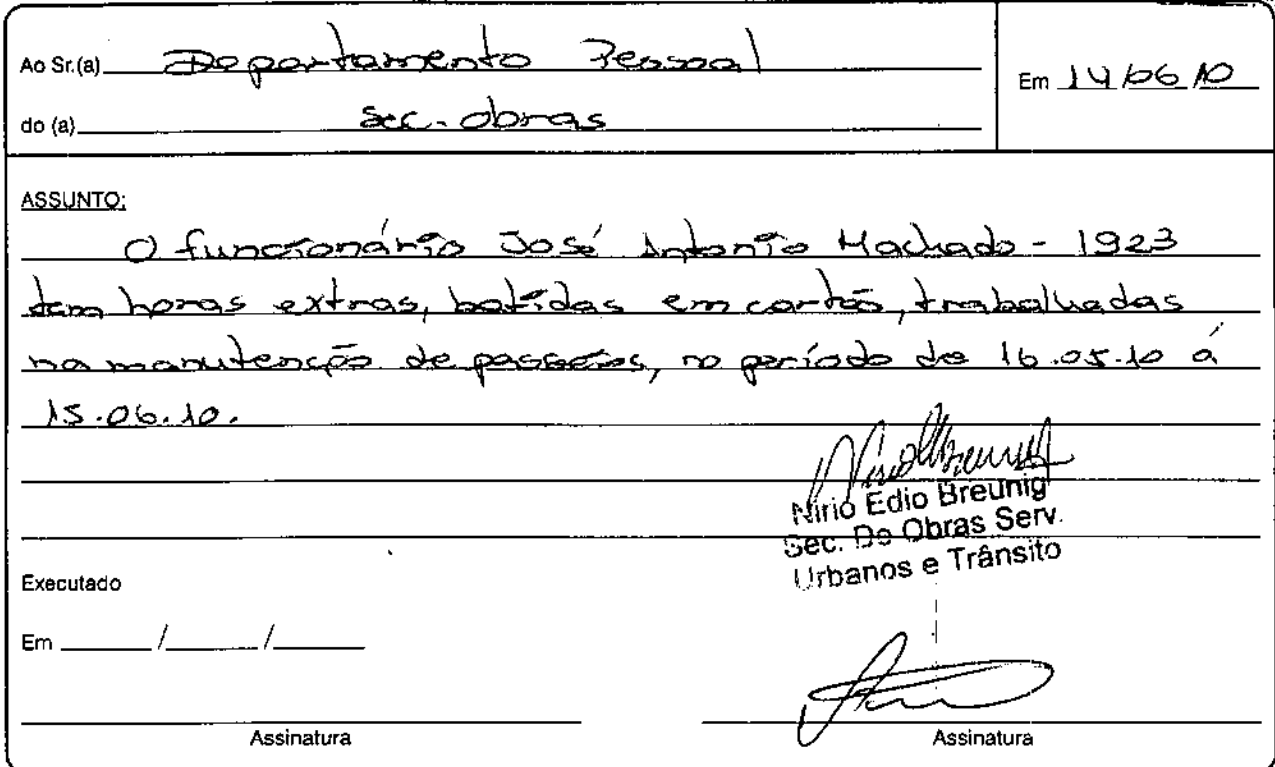 Ao Sr.(a) Departamento Pessoal
Em 14/06/10
do (a) Sec. obras
ASSUNTO:
O funcionário José Antonio Machado - 1923
tem horas extras, batidas em cartão, trabalhadas
na manutenção de passeios, no período de 16.05.10 á
15.06.10.
Nirio Edio Breunig
Sec. De Obras Serv.
Urbanos e Trânsito
Executado
Em ____/____/____
Assinatura
Assinatura